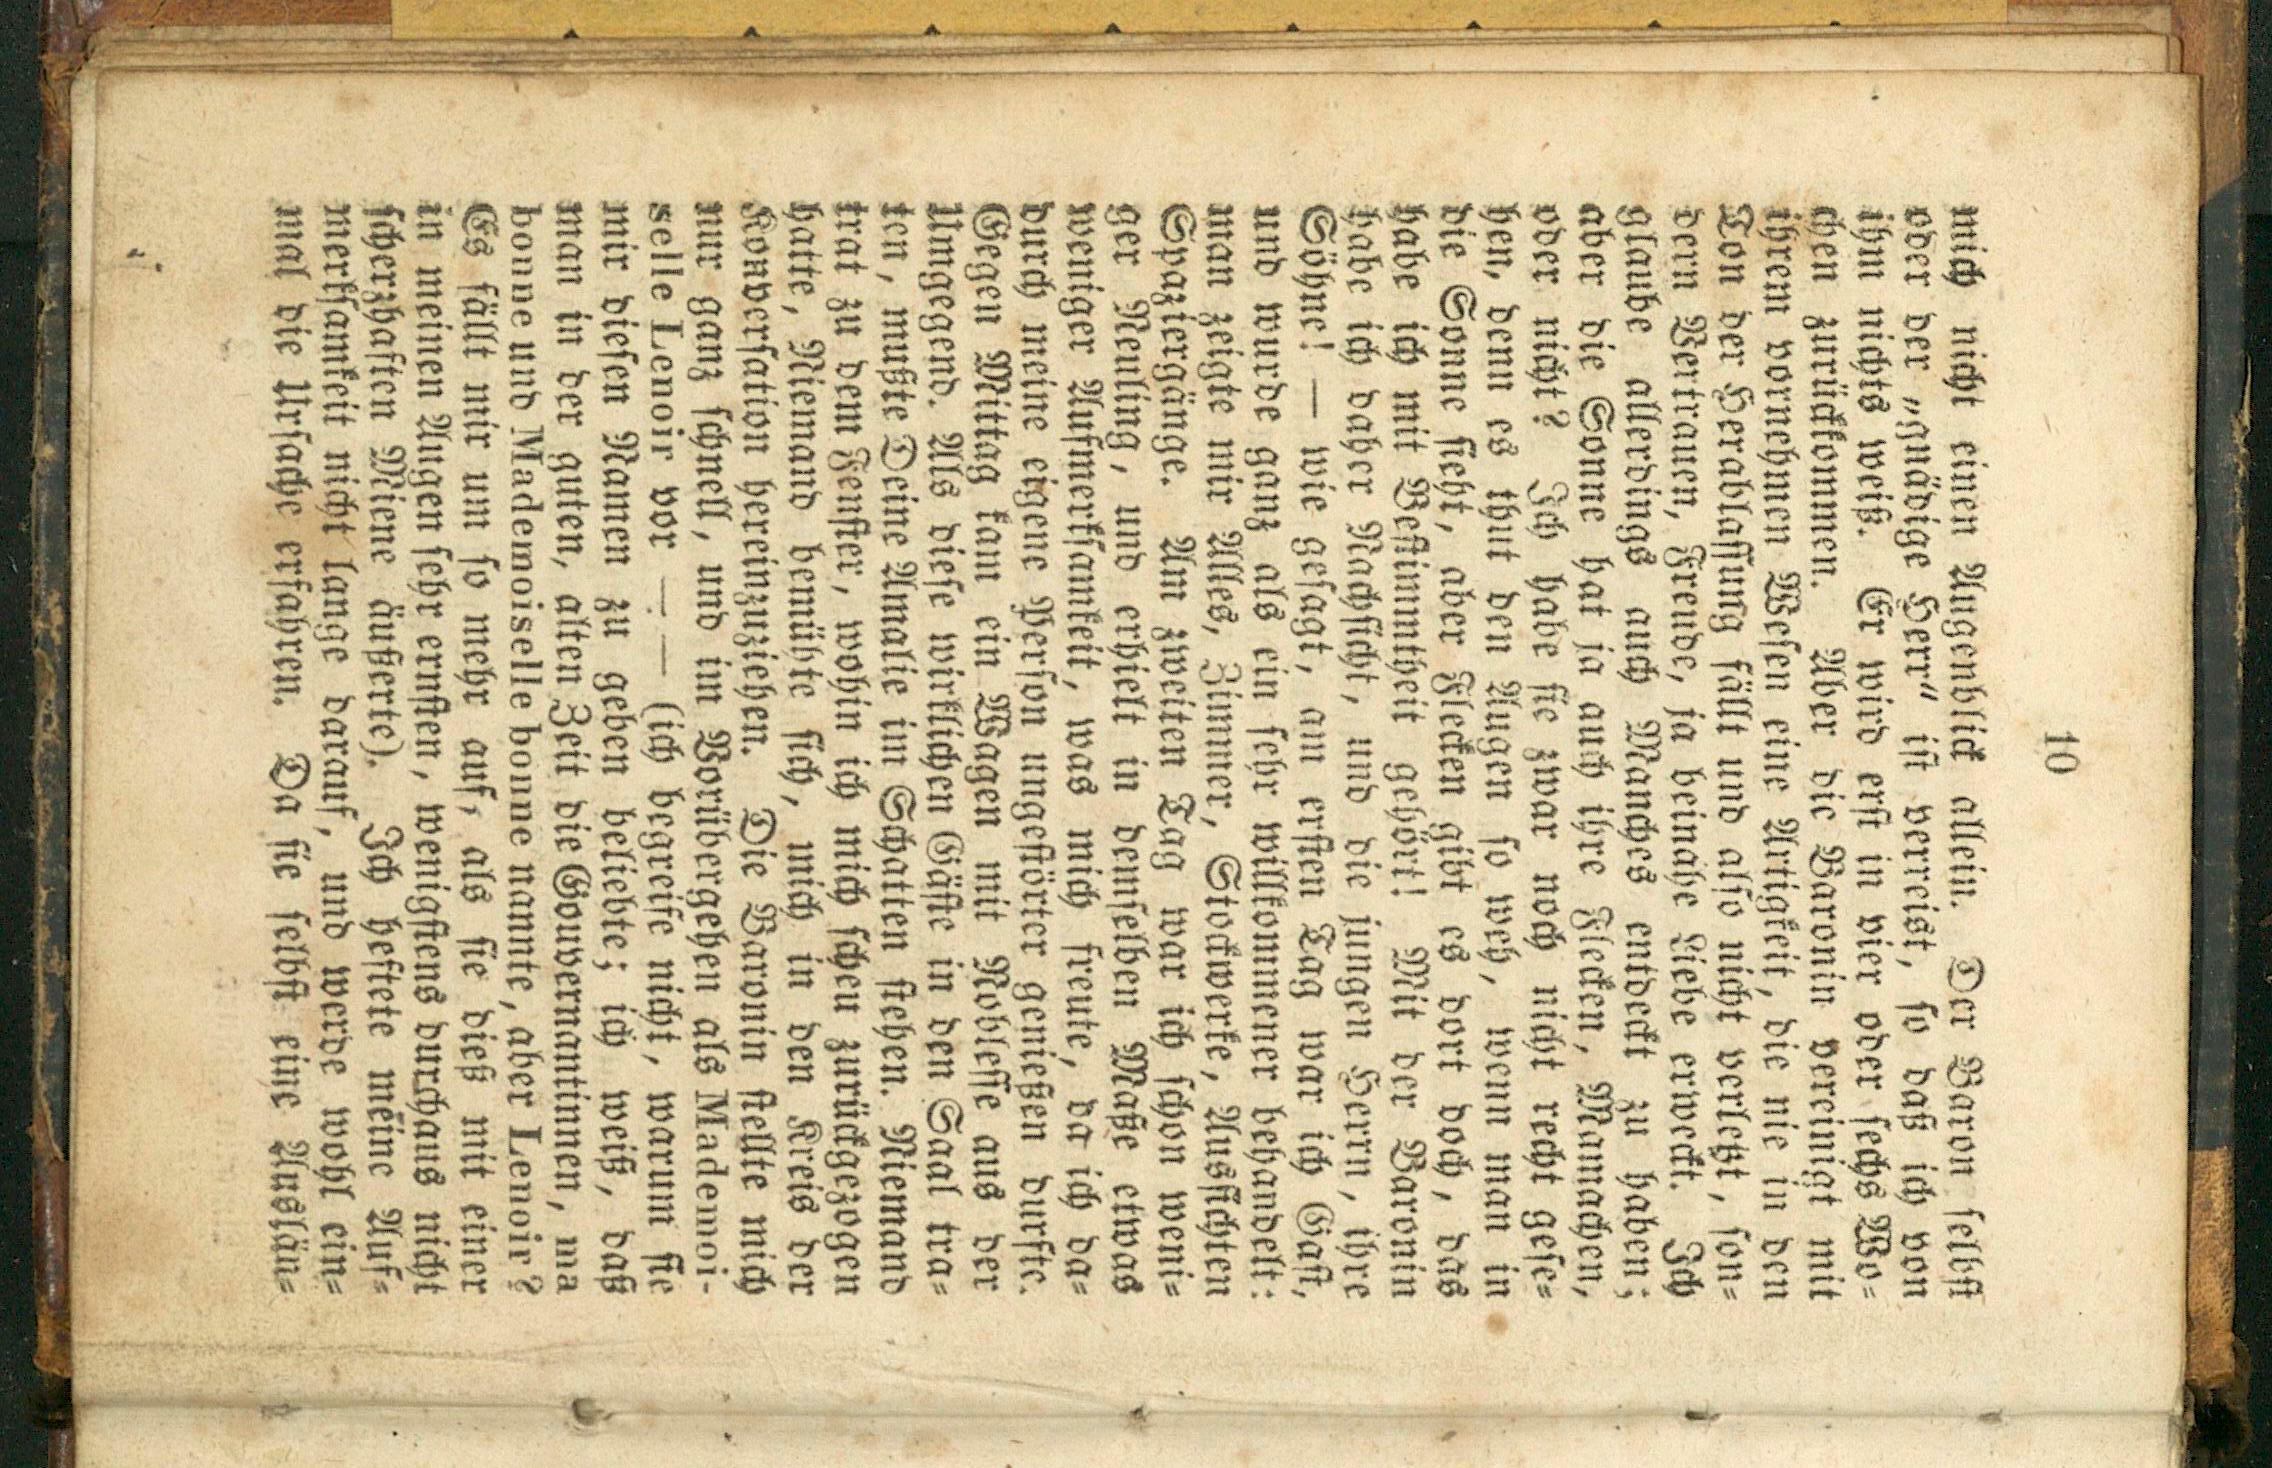 10
mich nicht einen Augenblick allein. Der Baron selbst
oder der „gnädige Herr“ ist verreist, so daß ich von
ihm nichts weiß. Er wird erst in vier oder sechs Wo=
chen zurückkommen. Aber die Baronin vereinigt mit
ihrem vornehmen Wesen eine Artigkeit, die nie in den
Ton der Herablassung fällt und also nicht verletzt, son=
dern Vertrauen, Freude, ja beinahe Liebe erweckt. Ich
glaube allerdings auch Manches entdeckt zu haben;
aber die Sonne hat ja auch ihre Flecken, Mamachen,
oder nicht? Ich habe sie zwar noch nicht recht gese=
hen, denn es thut den Augen so weh, wenn man in
die Sonne sieht, aber Flecken gibt es dort doch, das
habe ich mit Bestimmtheit gehört! Mit der Baronin
habe ich daher Nachsicht, und die jungen Herrn, ihre
Söhne! — wie gesagt, am ersten Tag war ich Gast,
und wurde ganz als ein sehr willkommener behandelt:
man zeigte mir Alles, Zimmer, Stockwerke, Aussichten
Spaziergänge. Am zweiten Tag war ich schon weni=
ger Neuling, und erhielt in demselben Maße etwas
weniger Aufmerksamkeit, was mich freute, da ich da=
durch meine eigene Person ungestörter genießen durfte.
Gegen Mittag kam ein Wagen mit Noblesse aus der
Umgegend. Als diese wirklichen Gäste in den Saal tra=
ten, mußte Deine Amalie im Schatten stehen. Niemand
trat zu dem Fenster, wohin ich mich scheu zurückgezogen
hatte, Niemand bemühte sich, mich in den Kreis der
Konversation hereinzuziehen. Die Baronin stellte mich
nur ganz schnell, und im Vorübergehen als Mademoi-
selle Lenoir vor — — (ich begreife nicht, warum sie
mir diesen Namen zu geben beliebte; ich weiß, daß
man in der guten, alten Zeit die Gouvernantinnen, ma
bonne und Mademoiselle bonne nannte, aber Lenoir?
Es fällt mir um so mehr auf, als sie dieß mit einer
in meinen Augen sehr ernsten, wenigstens durchaus nicht
scherzhaften Miene äußerte). Ich heftete meine Auf=
merksamkeit nicht lange darauf, und werde wohl ein=
mal die Ursache erfahren. Da sie selbst eine Auslän=